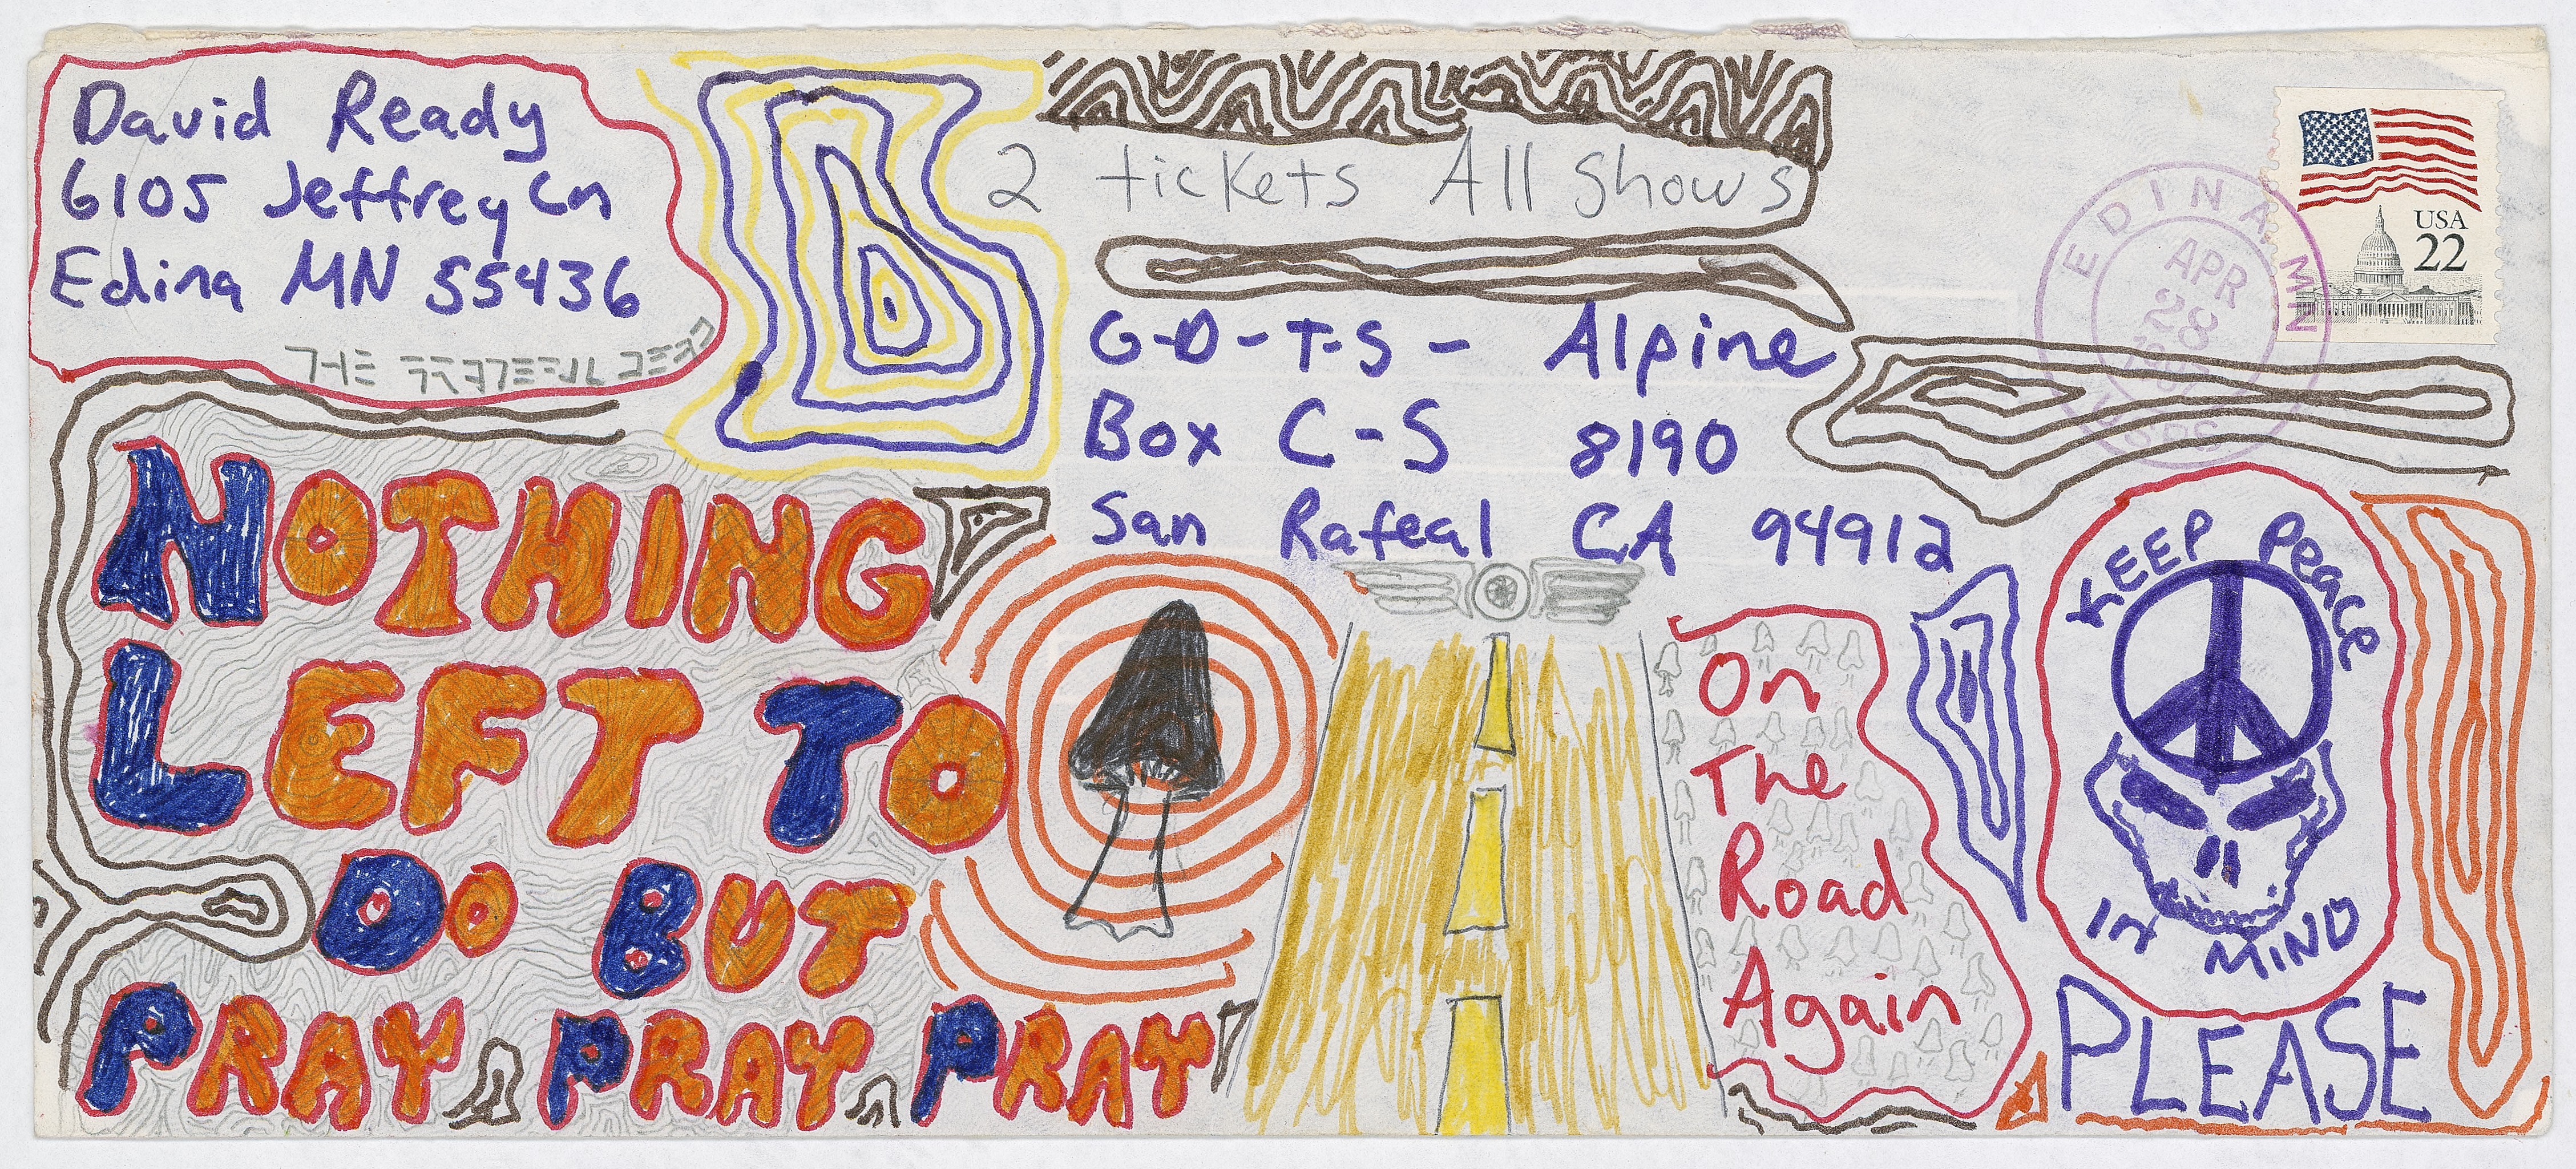 David Ready
6105 Jeffrey Ln
Edina MN 55436
THE GRATEFUL DEAD
2 tickets All Shows
G-D-T-S- Alpine
Box C-S 8190
San Rafeal CA 94912
USA
22
EDINA, MN
APR
28
USPS
NOTHING
LEFT TO
DO BUT
PRAY PRAY PRAY
On
The
Road
Again
KEEP Peace
In MIND
PLEASE